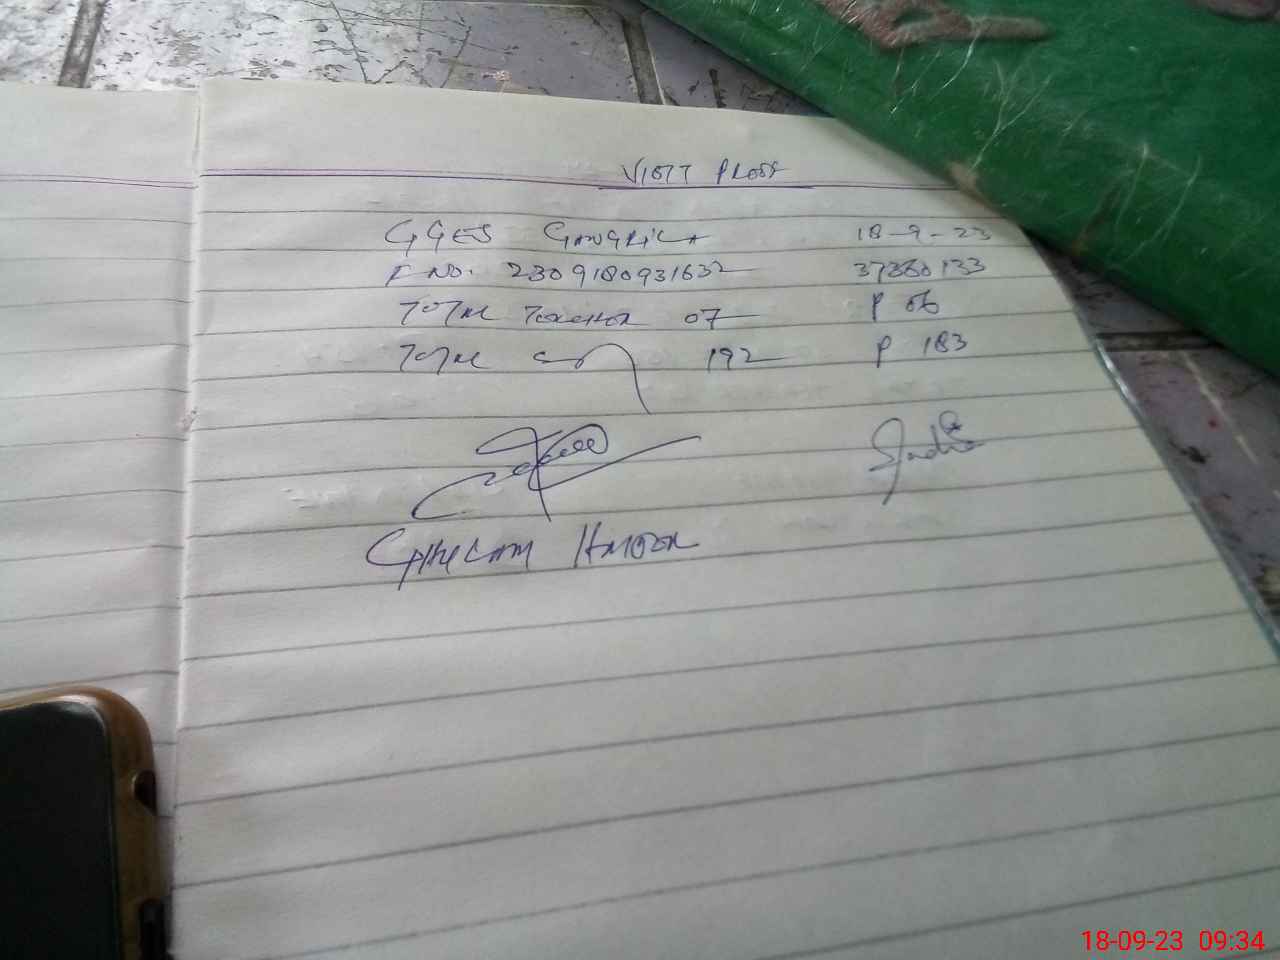 VISIT PROOF
GGES 18-9-23
F NO. 2309180931632 37380133
TOTAL TEACHER 07 P 06
TOTAL 192 P 183
GHULAM HAIDER
18-09-23 09:34